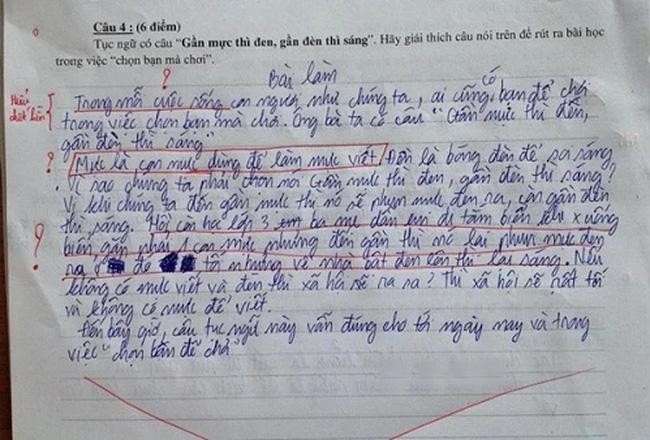 Câu 4 : (6 điểm)
Tục ngữ có câu "Gần mực thì đen, gần đèn thì sáng". Hãy giải thích câu nói trên để rút ra bài học
trong việc "chọn bạn mà chơi".
Bài làm
Trong mỗi cuộc sống con người như chúng ta, ai cũng có bạn để chơi
trong việc chọn bạn mà chơi. Ông bà ta có câu "Gần mực thì đen,
gần đèn thì sáng"
Mực là con mực dùng để làm mực viết. Đèn là bóng đèn để ra sáng
. Vì sao chúng ta phải chọn nói Gần mực thì đen, gần đèn thì sáng?
Vì khi chúng ta đến gần mực thì nó sẽ phun mực đen ra, còn gần đèn
thì sáng. Hồi còn học lớp 3 ba mẹ dẫn em đi tắm biển khi x uống
biển gần phải 1 con mực nhưng đến gần thì nó lại phun mực đen
ra ở đó tối nhưng về nhà bật đèn lên thì lại sáng. Nếu
không có mực viết và đèn thì xã hội sẽ ra sa? Thì xã hội sẽ rất tối
và không có mực để viết.
Đến bây giờ, câu tục ngữ này vẫn đúng cho tới ngày nay và trong
việc "chọn bạn để chơi"